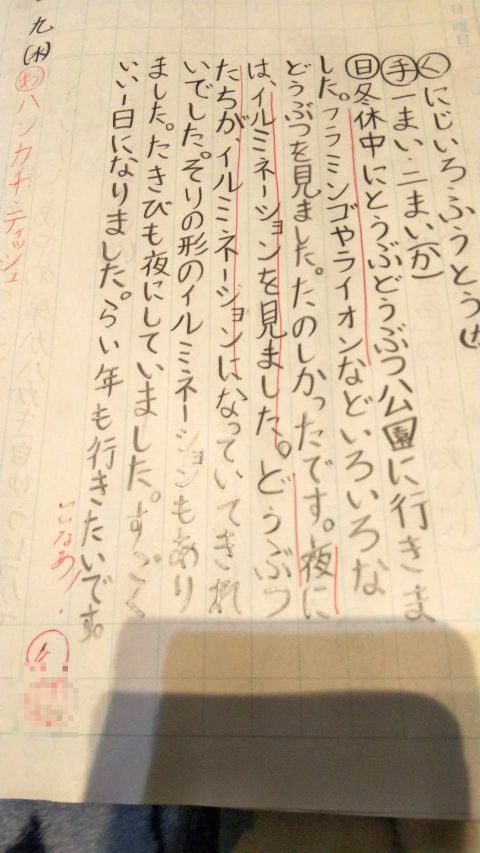 く にじいろふうとう
手 一まい、二まい(か)
日 冬休中にとうぶどうぶつ公園に行きま
した。フラミンゴやライオンなどいろいろな
どうぶつを見ました。たのしかったです。夜に
は、イルミネーションを見ました。どうぶつ
たちが、イルミネーションになっていてきれ
いでした。そりの形のイルミネーションもあり
ました。たきびも夜にしていました。すごく
いい1日になりました。らい年も行きたいです。
九(水)
わ ハンカチ・ティッシュ